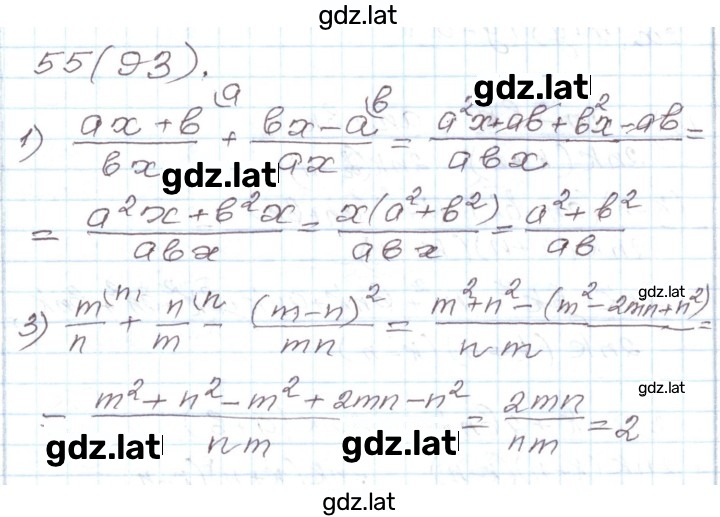 gdz.lat
55(93).
gdz.lat
1) (ax+в)/(вx) (a + (вx-a)/(ax) (в = (a²x+aв+в²x-aв)/(aвx) =
gdz.lat
= (a²x+в²x)/(aвx) = (x(a²+в²))/(aвx) = (a²+в²)/(aв)
gdz.lat
3) m/n (m + n/m (n - (m-n)²/(mn) = (m²+n²-(m²-2mn+n²))/(nm) =
gdz.lat
- (m²+n²-m²+2mn-n²)/(nm) = (2mn)/(nm) = 2
gdz.lat gdz.lat
gdz.lat